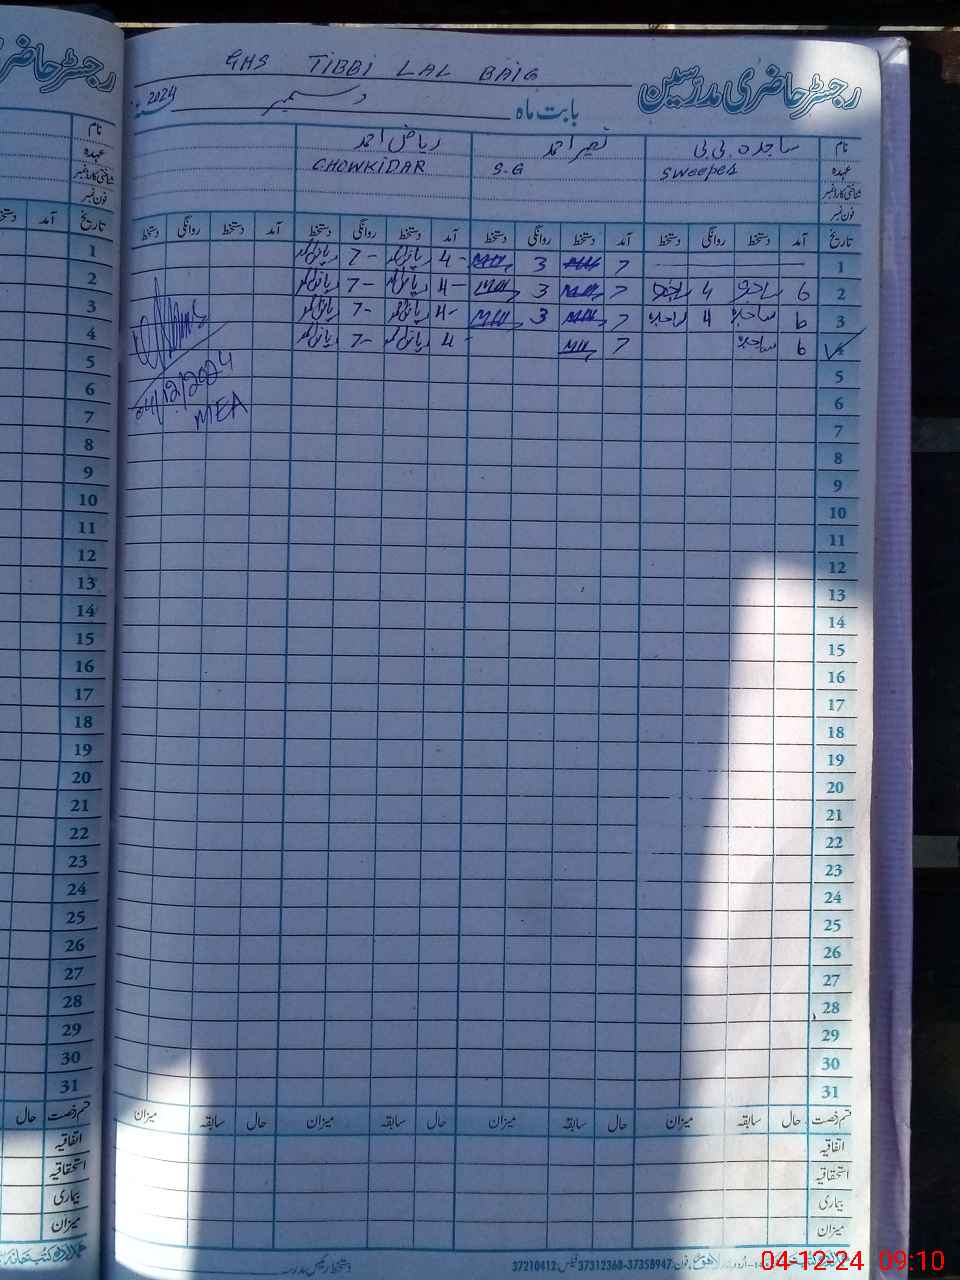 GHS TIBBI LAL BAIG
رجسٹر حاضری مدرسین
بابت ماہ دسمبر 2024
نام ساجدہ بی بی نصیر احمد ریاض احمد
عہدہ sweeper S.G CHOWKIDAR
شناختی کارڈ نمبر
فون نمبر
تاریخ آمد دستخط روانگی دستخط آمد دستخط روانگی دستخط آمد دستخط روانگی دستخط آمد دستخط روانگی دستخط
1 7 3 4 - 7 -
2 6 ساجدہ 4 ساجدہ 7 3 4 - 7 -
3 6 ساجدہ 4 ساجدہ 7 3 4 - 7 -
4 6 ساجدہ 7 4 - 7 -
5
6
7
8
9
10
11
12
13
14
15
16
17
18
19
20
21
22
23
24
25
26
27
28
29
30
31
04/12/2024
MEA
قسم رخصت حال سابقہ میزان حال سابقہ میزان حال سابقہ میزان حال سابقہ میزان
اتفاقیہ
استحقاقیہ
بیماری
میزان
دستخط رئیس مدرسہ
لاہور فون: 37358947-37312368 فیکس: 37210412
نام
عہدہ
شناختی کارڈ نمبر
فون نمبر
تاریخ آمد
1
2
3
4
5
6
7
8
9
10
11
12
13
14
15
16
17
18
19
20
21
22
23
24
25
26
27
28
29
30
31
قسم رخصت حال
اتفاقیہ
استحقاقیہ
بیماری
میزان
04-12-24 09:10